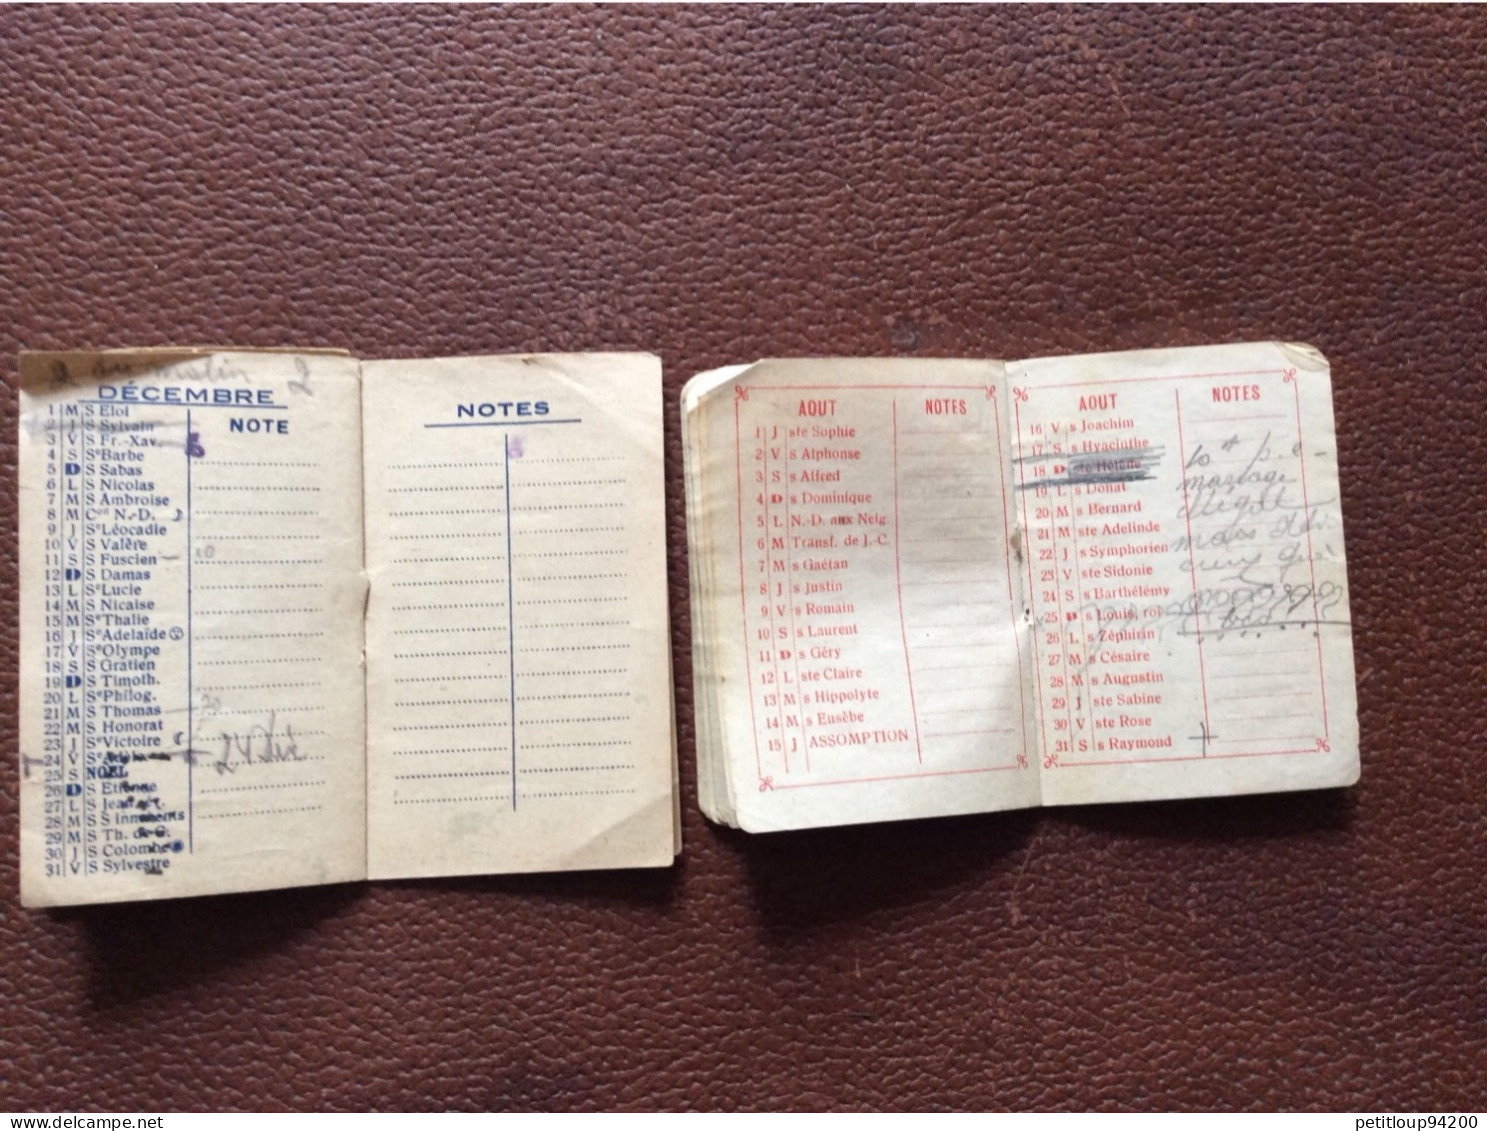 2 au matin 2
DÉCEMBRE
NOTE
1 M S Eloi
2 J S Sylvain
3 V S Fr.-Xav.
4 S Sᵉ Barbe
5 D S Sabas
6 L S Nicolas
7 M S Ambroise
8 M Cᵒⁿ N.-D.
9 J Sᵉ Léocadie
10 V S Valère
11 S S Fuscien
12 D S Damas
13 L Sᵉ Lucie
14 M S Nicaise
15 M Sᵉ Thalie
16 J Sᵉ Adelaïde
17 V Sᵉ Olympe
18 S S Gratien
19 D S Timoth.
20 L Sᵉ Philog.
21 M S Thomas
22 M S Honorat
23 J Sᵉ Victoire
24 V Sᵉ Adèle
24 Dée
25 S NOEL
26 D S Etienne
27 L S Jean
28 M S S Innocents
29 M S Th. de C.
30 J S Colombe
31 V S Sylvestre
NOTES
AOUT NOTES
1 J ste Sophie
2 V s Alphonse
3 S s Alfred
4 D s Dominique
5 L N.-D. aux Neig
6 M Transf. de J.-C.
7 M s Gaëtan
8 J s Justin
9 V s Romain
10 S s Laurent
11 D s Géry
12 L ste Claire
13 M s Hippolyte
14 M s Eusèbe
15 J ASSOMPTION
AOUT NOTES
16 V s Joachim
17 S s Hyacinthe
18 D ste Hélène
19 L s Donat
20 M s Bernard
21 M ste Adelinde
22 J s Symphorien
23 V ste Sidonie
24 S s Barthélémy
25 D s Louis, roi
26 L s Zéphirin
27 M s Césaire
28 M s Augustin
29 J ste Sabine
30 V ste Rose
31 S s Raymond
mariage
illégal
petitloup94200